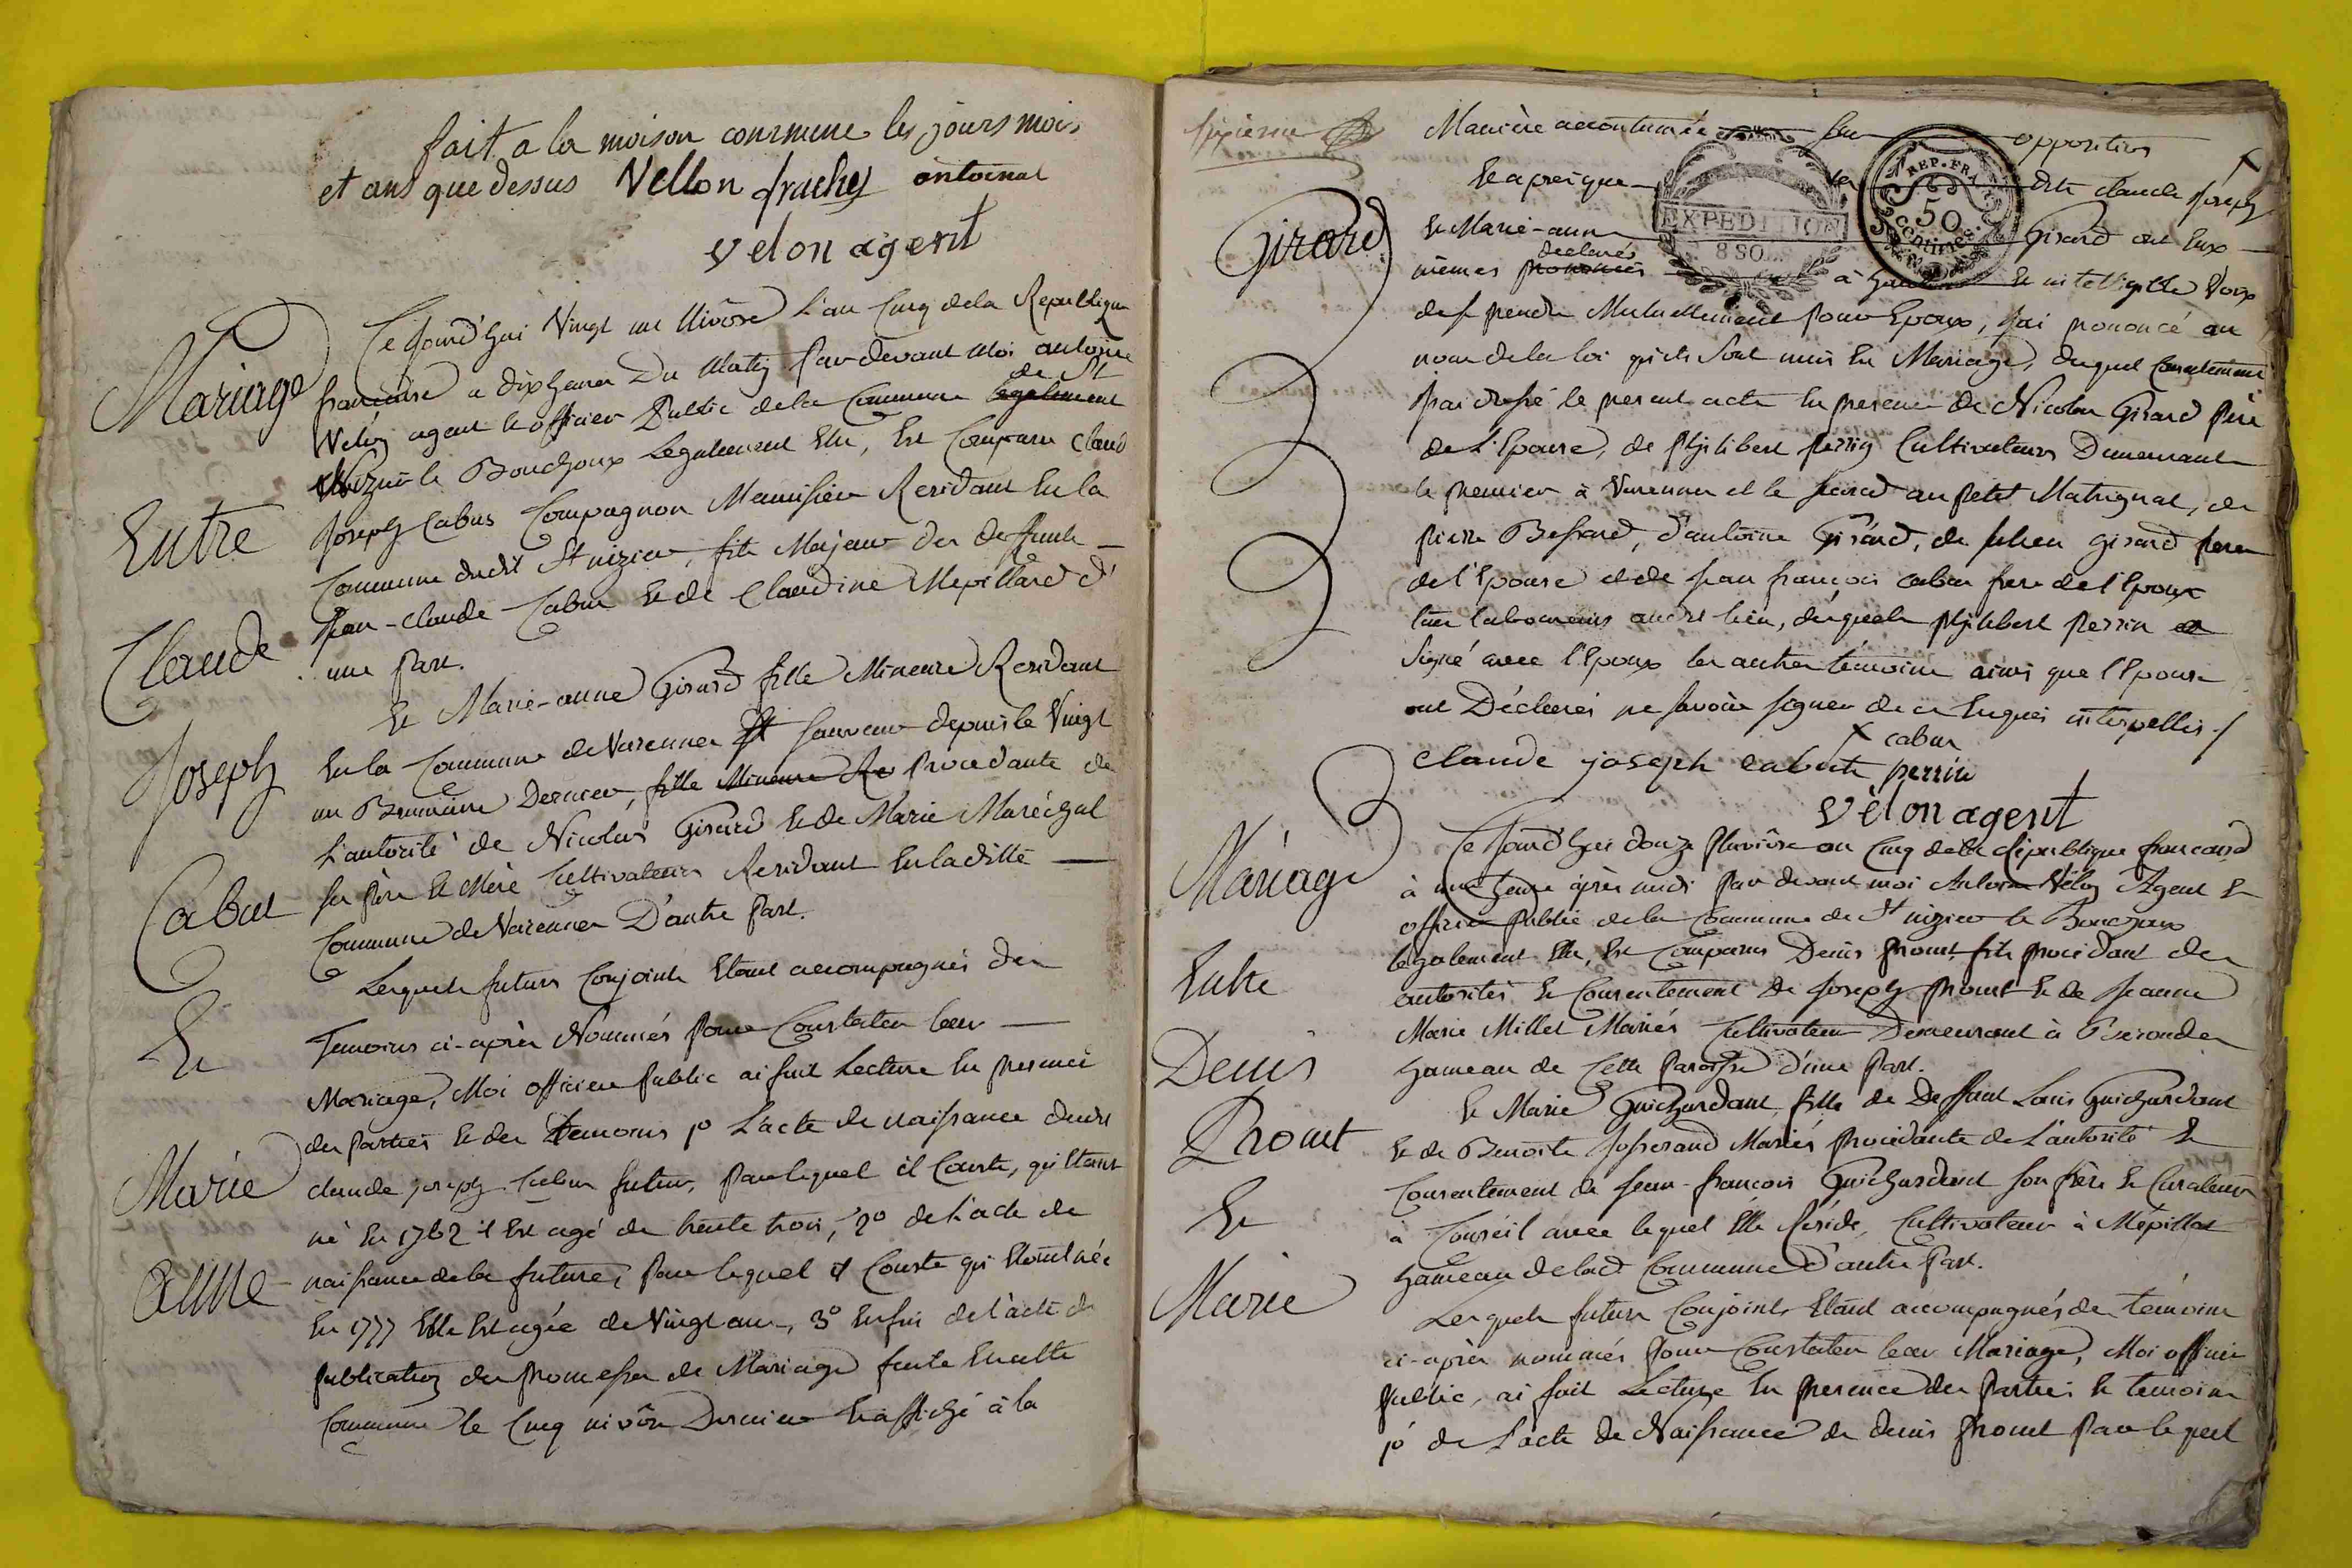 fait a la maison commune les jours mois
et ans que dessus Vellon frachey antoinat
velon agent
Mariage
Entre
Claude
Joseph
Cabut
Et
Marie
anne
Ce Jourd'hui Vingt un Nivôse L'an Cinq de la Republique
française a dix heures Du Matin Par devant Moi antoine
Velon agent et officier Public de la Commune legalement de St
Nizier le Bouchoux Legalement Elu, Est Comparu Claude
Joseph Cabut Compagnon Menuisier Residant En la
Commune dudit St nizier, fils Majeur des deffunts
Jean-Claude Cabut Et de Claudine Mepillard d'
une Part.
Et Marie-anne Girard fille Mineure Residant
En la Commune de Varennes St Sauveur depuis le Vingt
un Brumaire Dernier, fille Mineure Re Procedante de
L'autorité de Nicolas Girard Et de Marie Maréchal
Ses Père Et Mère Cultivateurs Residant En laditte
Commune de Varennes D'autre Part.
Lesquels futurs Conjoints Etant accompagnés des
Temoins ci-après Nommés Pour Constater leur
Mariage, Moi officier Public ai fait Lecture En presence
des Parties Et des temoins 1º L'acte de naissance dudit
claude joseph Cabut futur, Par lequel il Conste, qu'Etant
né En 1762 il Est agé de trente trois, 2º de l'acte de
naissance de la future, Par lequel il Conste qu'Etant née
En 1777 Elle Est agée de Vingt ans, 3º Enfin de l'acte de
Publication des Promesses de Mariage faite En cette
Commune le Cinq nivôse Dernier Et affiché à la
sixieme
Girard
Manière accoutumée sans opposition
Et après que les dits claude Joseph
Et Marie-anne Girard ont Eux
mêmes prononcés declarés à haute Et intelligible Voix
de se prendre Mutuellement Pour Epoux, J'ai prononcé au
nom de la loi qu'ils sont unis En Mariage, duquel Consentement
J'ai dressé le present acte En presence de Nicolas Girard Père
de L'Epouse, de Philibert Perrin Cultivateurs Demeurant
le premier à Varennes et le second au petit Matrignat, de
Pierre Bessard, d'antoine Girard, de Julien Girard freres
de l'Epouse et de Jean françois cabut frere de l'Epoux
tous laboureurs audit lieu, desquels Philibert Perrin a
Signé avec l'Epoux les autres témoins ainsi que l'Epouse
ont Déclarés ne savoir signer de ce Enquis interpellés./
claude joseph cabut X cabut
perrin
velon agent
Mariage
Entre
Denis
Promt
Et
Marie
Ce Jourd'hui douze Pluviôse an Cinq de la République francaise
à une heure après midi Par devant moi Antoine Vélon Agent Et
officier Public de la Commune de St nizier le Bouchoux
legalement Elu, Est Comparus Denis Promt fils procédant des
autorités Et Consentement de Joseph Promt Et de Jeanne
Marie Millet Mariés Cultivateurs Demeurant à Beronde
hameau de Cette Paroisse d'une Part.
Et Marie Guichardant fille de Deffunt Louis Guichardant
Et de Benoite Josserand Mariés Procédante de L'autorité Et
Consentement de Jean-francois Guichardant son frère Et Curateur
à Conseil avec lequel Elle Réside, Cultivateur à Mépillat
hameau de lad Commune D'autre Part.
Lesquels futurs Conjoints Etant accompagnés de témoins
ci-après nommés Pour Constater leur Mariage, Moi officier
Public, ai fait Lecture En Presence des Parties Et temoins
1º de L'acte de Naissance de denis Promt Par lequel
EXPEDITION
8 SO.
REP. FRA.
50
Centimes.